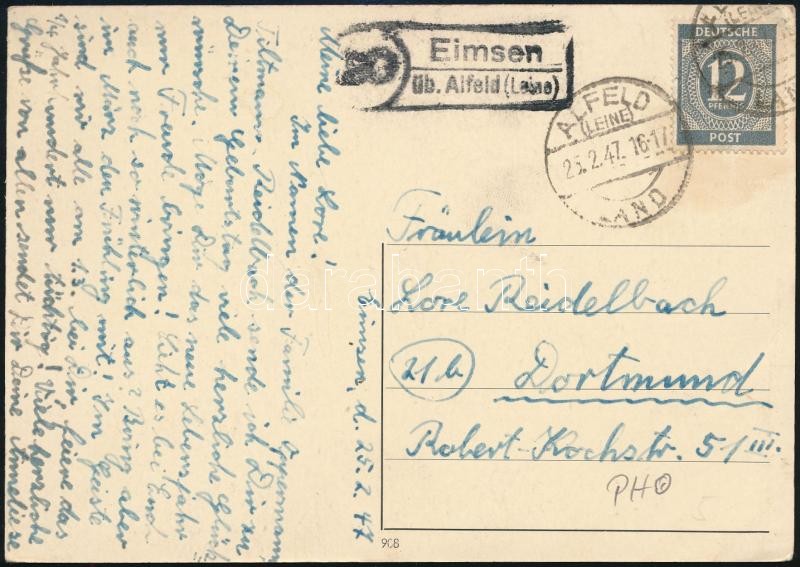 Eimsen
üb. Alfeld (Leine)
ALFELD
(LEINE)
25.2.47.16-17
LAND
DEUTSCHE
12
PFENNIG
POST
Eimsen, d. 25.2.47
Meine liebe Lore!
Im Namen der Familie Oppermann,
Tiltmanns, Reidelbach sende ich Dir zu
Deinem Geburtstag viele herzliche Glück-
wünsche. Möge Dir das neue Lebensjahr
nur Freude bringen! Sieht es bei Euch
auch noch so winterlich aus? Bring aber
im März den Frühling mit! Im Geiste
sind wir alle am 1.3. bei Dir, feiere das
1/4 Jahrhundert nur tüchtig! Viele herzliche
Grüße von allen sendet Dir Deine Anneliese
Fräulein
Lore Reidelbach
21b Dortmund
Robert-Kochstr. 51 III.
PH
908
darabanth